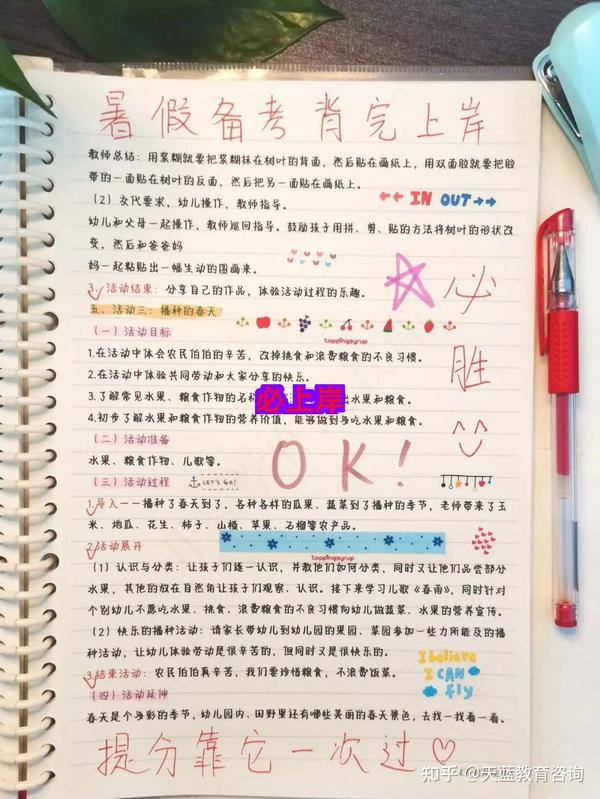 暑假备考背完上岸
教师总结：用浆糊就要把浆糊抹在树叶的背面，然后贴在画纸上，用双面胶就要把胶
带的一面贴在树叶的反面，然后把另一面贴在画纸上。
（2）交代要求，幼儿操作，教师指导。
IN OUT
幼儿和父母一起操作，教师巡回指导。鼓励孩子用拼、剪、贴的方法将树叶的形状改
变，然后和爸爸妈
妈一起粘贴出一幅生动的图画来。
3.活动结束：分享自己的作品，体验活动过程的乐趣。
必
五、活动三：播种的春天
（一）活动目标
toppingsyrup
1.在活动中体会农民伯伯的辛苦，改掉挑食和浪费粮食的不良习惯。
胜
2.在活动中体验共同劳动和大家分享的快乐。
3.了解常见水果、粮食作物的名称 出水果和粮食。
必上岸
4.初步了解水果和粮食作物的营养价值，能够做到多吃水果和粮食。
（二）活动准备
水果、粮食作物、儿歌等。
OK!
（三）活动过程
LET'S GO!
1.导入——播种了春天到了，各种各样的瓜果、蔬菜到了播种的季节，老师带来了玉
米、地瓜、花生、柿子、山楂、苹果、石榴等农产品。
2.活动展开
toppingsyrup
（1）认识与分类：让孩子们逐一认识，并教他们如何分类，同时又让他们品尝部分
水果，其他的放在自然角让孩子们观察、认识。接下来学习儿歌《春雨》，同时针对
个别幼儿不愿吃水果、挑食、浪费粮食的不良习惯向幼儿做蔬菜、水果的营养宣传。
（2）快乐的播种活动：请家长带幼儿到幼儿园的果园、菜园参加一些力所能及的播
种活动，让幼儿体验劳动是很辛苦的，但同时又是很快乐的。
I believe
I CAN
fly
3.结束活动：农民伯伯真辛苦，我们要珍惜粮食，不浪费饭菜。
（四）活动延伸
春天是个多彩的季节，幼儿园内、田野里还有哪些美丽的春天景色，去找一找看一看。
提分靠它一次过
知乎 @天蓝教育咨询